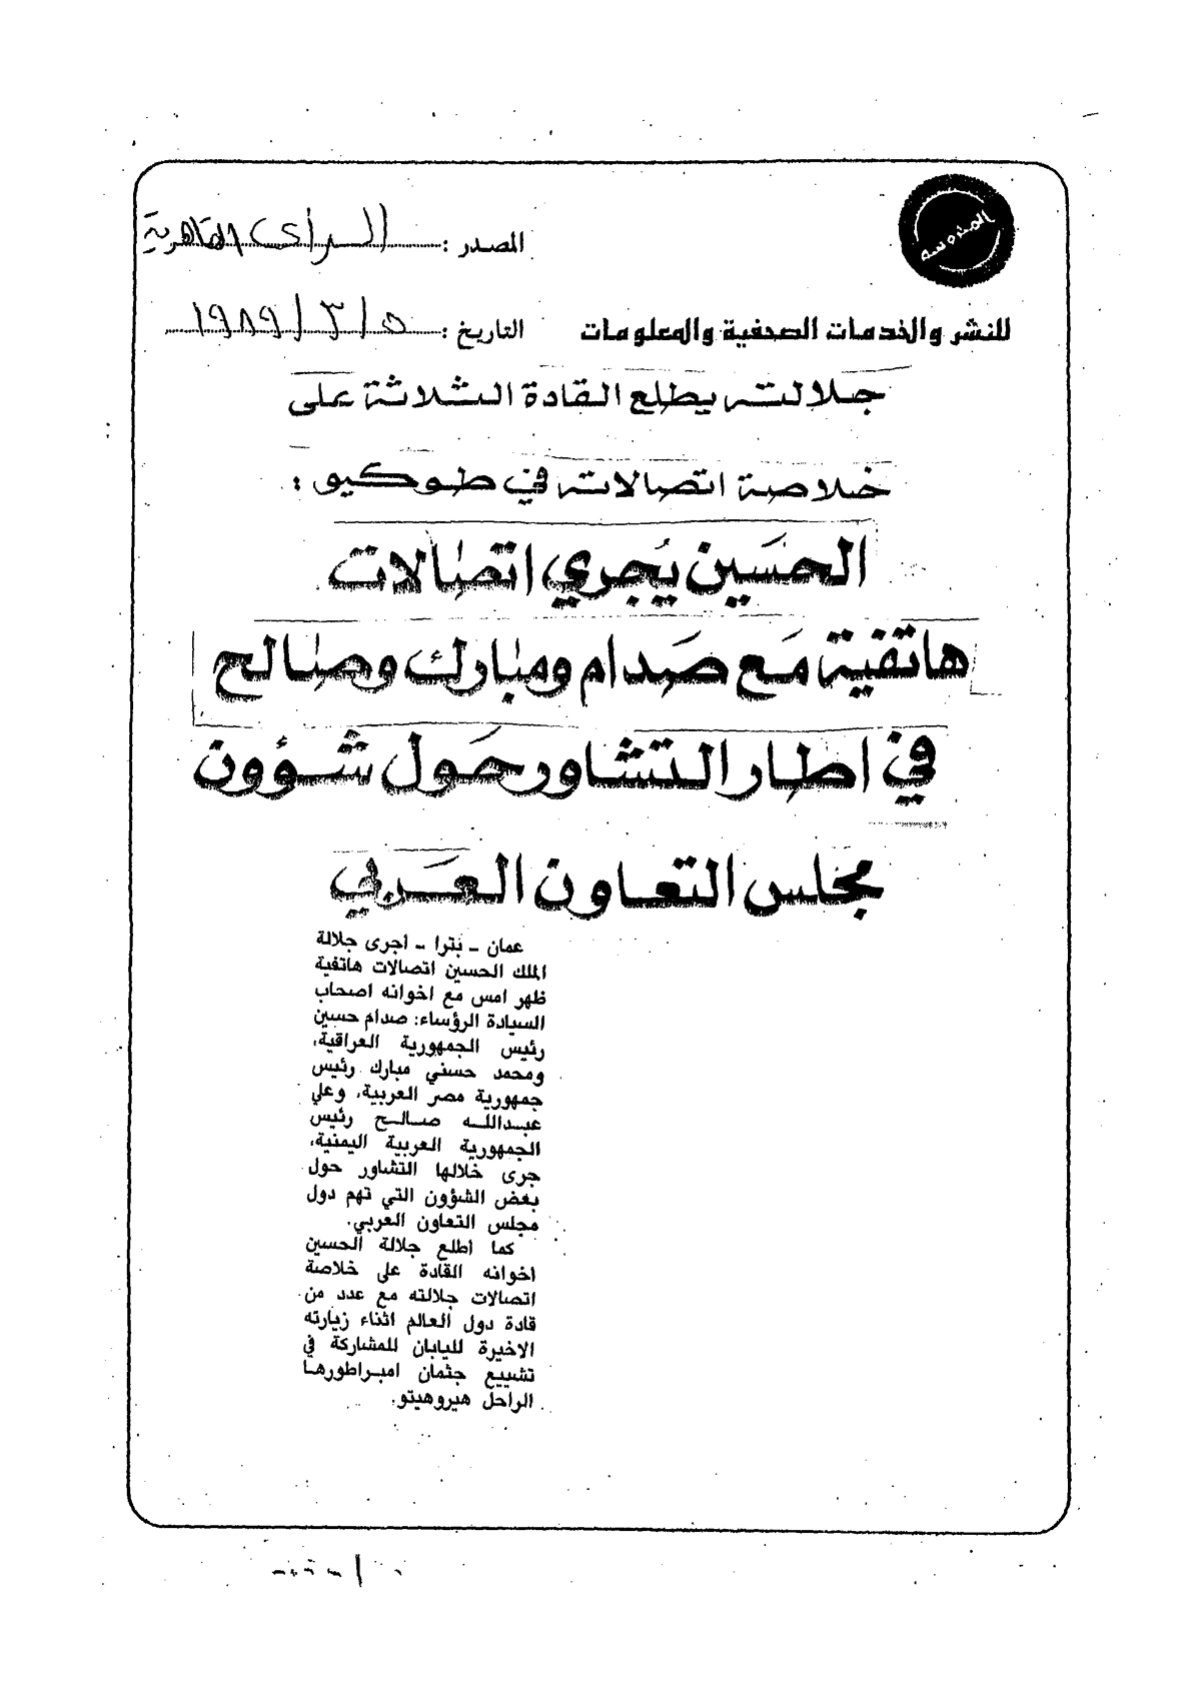 المحروسة
المصدر : الرأى القاهرية
للنشر والخدمات الصحفية والمعلومات
التاريخ : ٥ / ٣ / ١٩٨٩
جلالته يطلع القادة الثلاثة على
خلاصة اتصالاته في طوكيو :
الحسَين يُجري اتصالات
هاتفية مَع صَدام ومبارك وصالح
في اطار التشاور حَول شؤون
مجلس التعاون العَربي
عمان - بترا - اجرى جلالة
الملك الحسين اتصالات هاتفية
ظهر امس مع اخوانه اصحاب
السيادة الرؤساء: صدام حسين
رئيس الجمهورية العراقية،
ومحمد حسني مبارك رئيس
جمهورية مصر العربية، وعلي
عبدالله صالح رئيس
الجمهورية العربية اليمنية،
جرى خلالها التشاور حول
بعض الشؤون التي تهم دول
مجلس التعاون العربي.
كما أطلع جلالة الحسين
اخوانه القادة على خلاصة
اتصالات جلالته مع عدد من
قادة دول العالم اثناء زيارته
الاخيرة لليابان للمشاركة في
تشييع جثمان امبراطورها
الراحل هيروهيتو.